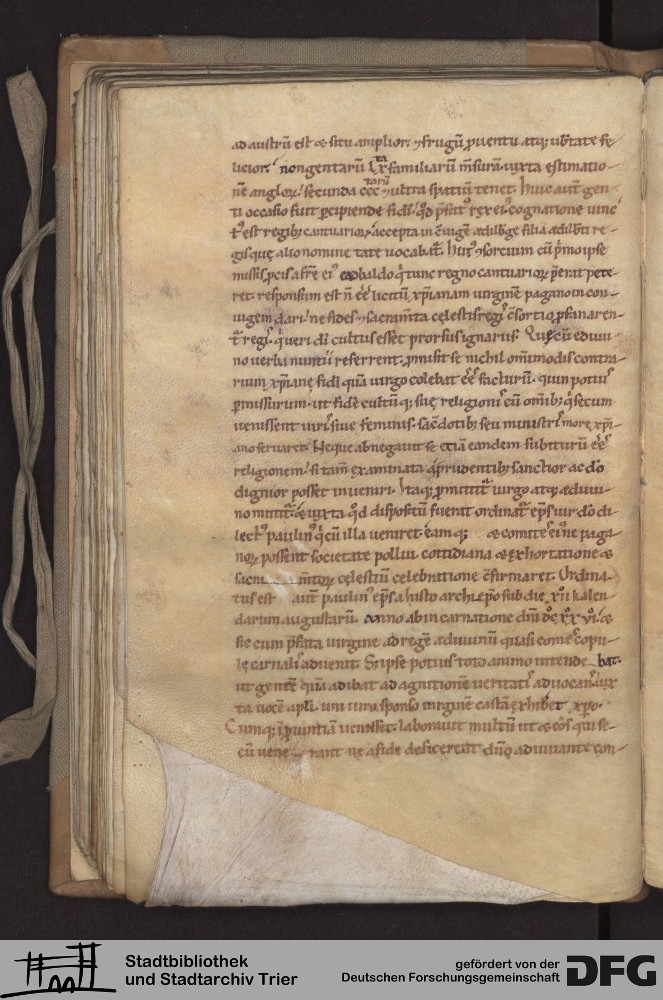 ad austrũ est & situ amplior. ⁊ frugũ ꝓuentu atq; ub̃tate fe-
licior. nongentarũ Lx ta familiarũ m̃surã. iuxta estimatio-
nẽ angloꝝ secunda ccc tarũ ⁊ ultra spatiũ tenet. Huic autẽ gen-
ti occasio fuit ꝑcipiende fidi. qd̃ p̃fat᷒ rex ei᷒ cognatione uinc
t᷒ est regib; cantuarioꝝ. accepta in c̃iugẽ ædilb̃ge filia ædilb̃ti re-
gis quę alio nomine tate uocabat᷑. Hui᷒ ⁊sorcium cũ p̃mo ipse
missis ꝓcis a fr̃e ei᷒ eodbaldo q̃ tunc regno cantuarioꝝ p̃erat pete-
ret. responsum est ñ ẽẽ licitũ xp̃ianam uirginẽ pagano in con-
iugem dari. ne fides ⁊ sacram̃ta celestis regis c̃sortio ꝓfanaren-
t᷑ regis. q̃ ueri di cultus esset prorsus ignarus. Quę cũ eduui-
no uerba nuntii referrent. ꝓmisit se nichil om̃imodis contra-
rium xp̃ianę fidi quã uirgo colebat ẽẽ facturũ. quin potius
ꝑmissurum. ut fidẽ cultũq; suę religionis cũ om̃ib; q̃ secum
uenissent uiris siue feminis. sac̃dotib; seu ministris more xp̃i-
ano seruaret. Neque abnegauit se etiã eandem subiturũ ẽẽ
religionem. si tam̃ examinata a prudentib; sanctior ac do
dignior posset inueniri. Itaq; ꝓmittit᷑ uirgo atq; æduui-
no mittit᷑. & iuxta qd̃ dispositũ fuerat ordinat᷑ ep̃s uir do di-
lect᷒ paulin᷒ q̃ cũ illa ueniret. eamq; & comites ei᷒ ne paga-
noꝝ possent societate pollui. cottidiana & exhortatione &
sacra m̃toꝝ cęlestiũ celebratione c̃firmaret. Ordina-
tus est aut̃ paulin᷒ ep̃s a iusto archiep̃o sub die xii kalen-
darum augustarũ. anno ab incarnatione dñi dc̃ xxvi. &
sic cum p̃fata uirgine ad regẽ æduuinũ quasi comes copu-
lę carnalis aduenit. S; ipse potius toto animo intende bat.
ut gentẽ quã adibat ad agnitionẽ ueritatis aduocans iux
ta uocẽ apl̃i. uni uiro sponso uirginẽ castã exhibet xp̃o.
Cumq; ĩ ꝓuintiã uenisset. laborauit multũ ut & eos qui se-
cũ uene rant ne a fide deficerent dñõ adiuuante con-
Stadtbibliothek
und Stadtarchiv Trier
gefördert von der
Deutschen Forschungsgemeinschaft
DFG